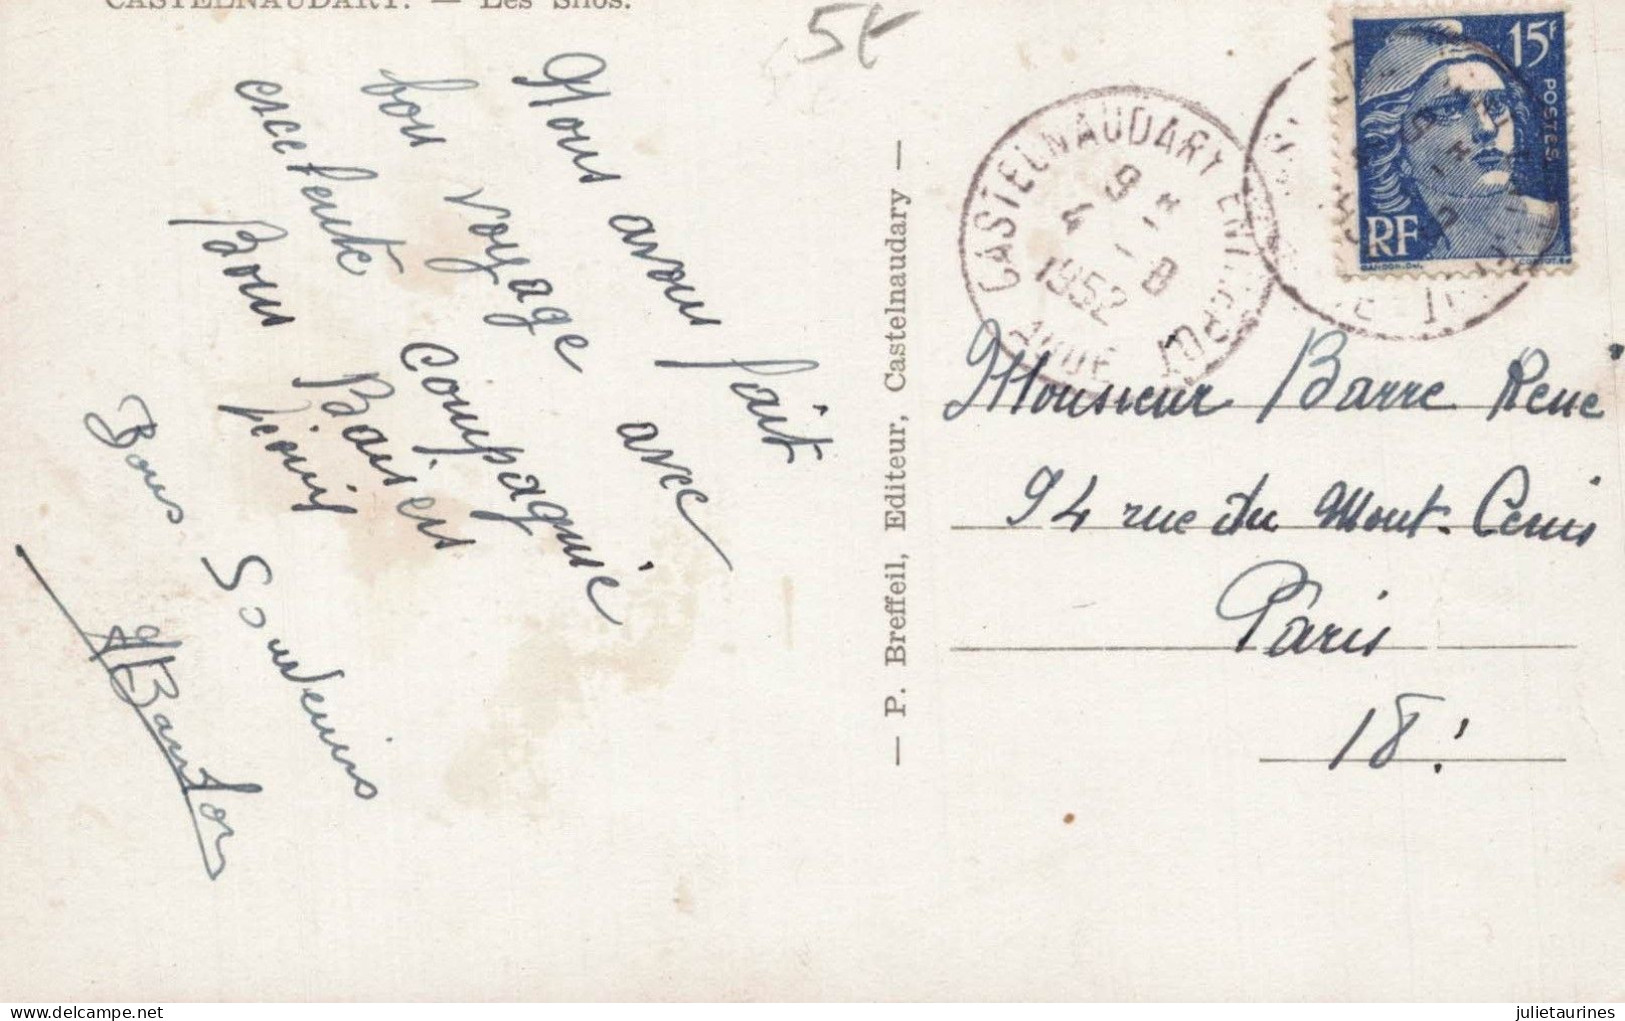 CASTELNAUDARY. — Les Silos.
5€
Nous avons fait
bon voyage avec
excelente compagnie
Bons Baisers
Bons Souvenirs
— P. Breffeil, Editeur, Castelnaudary —
CASTELNAUDARY ENTREPOT
9 H
4 - 8
1952
AUDE
15F
POSTES
RF
Monsieur Barre René
94 rue du Mont-Cenis
Paris
18!
julietaurines